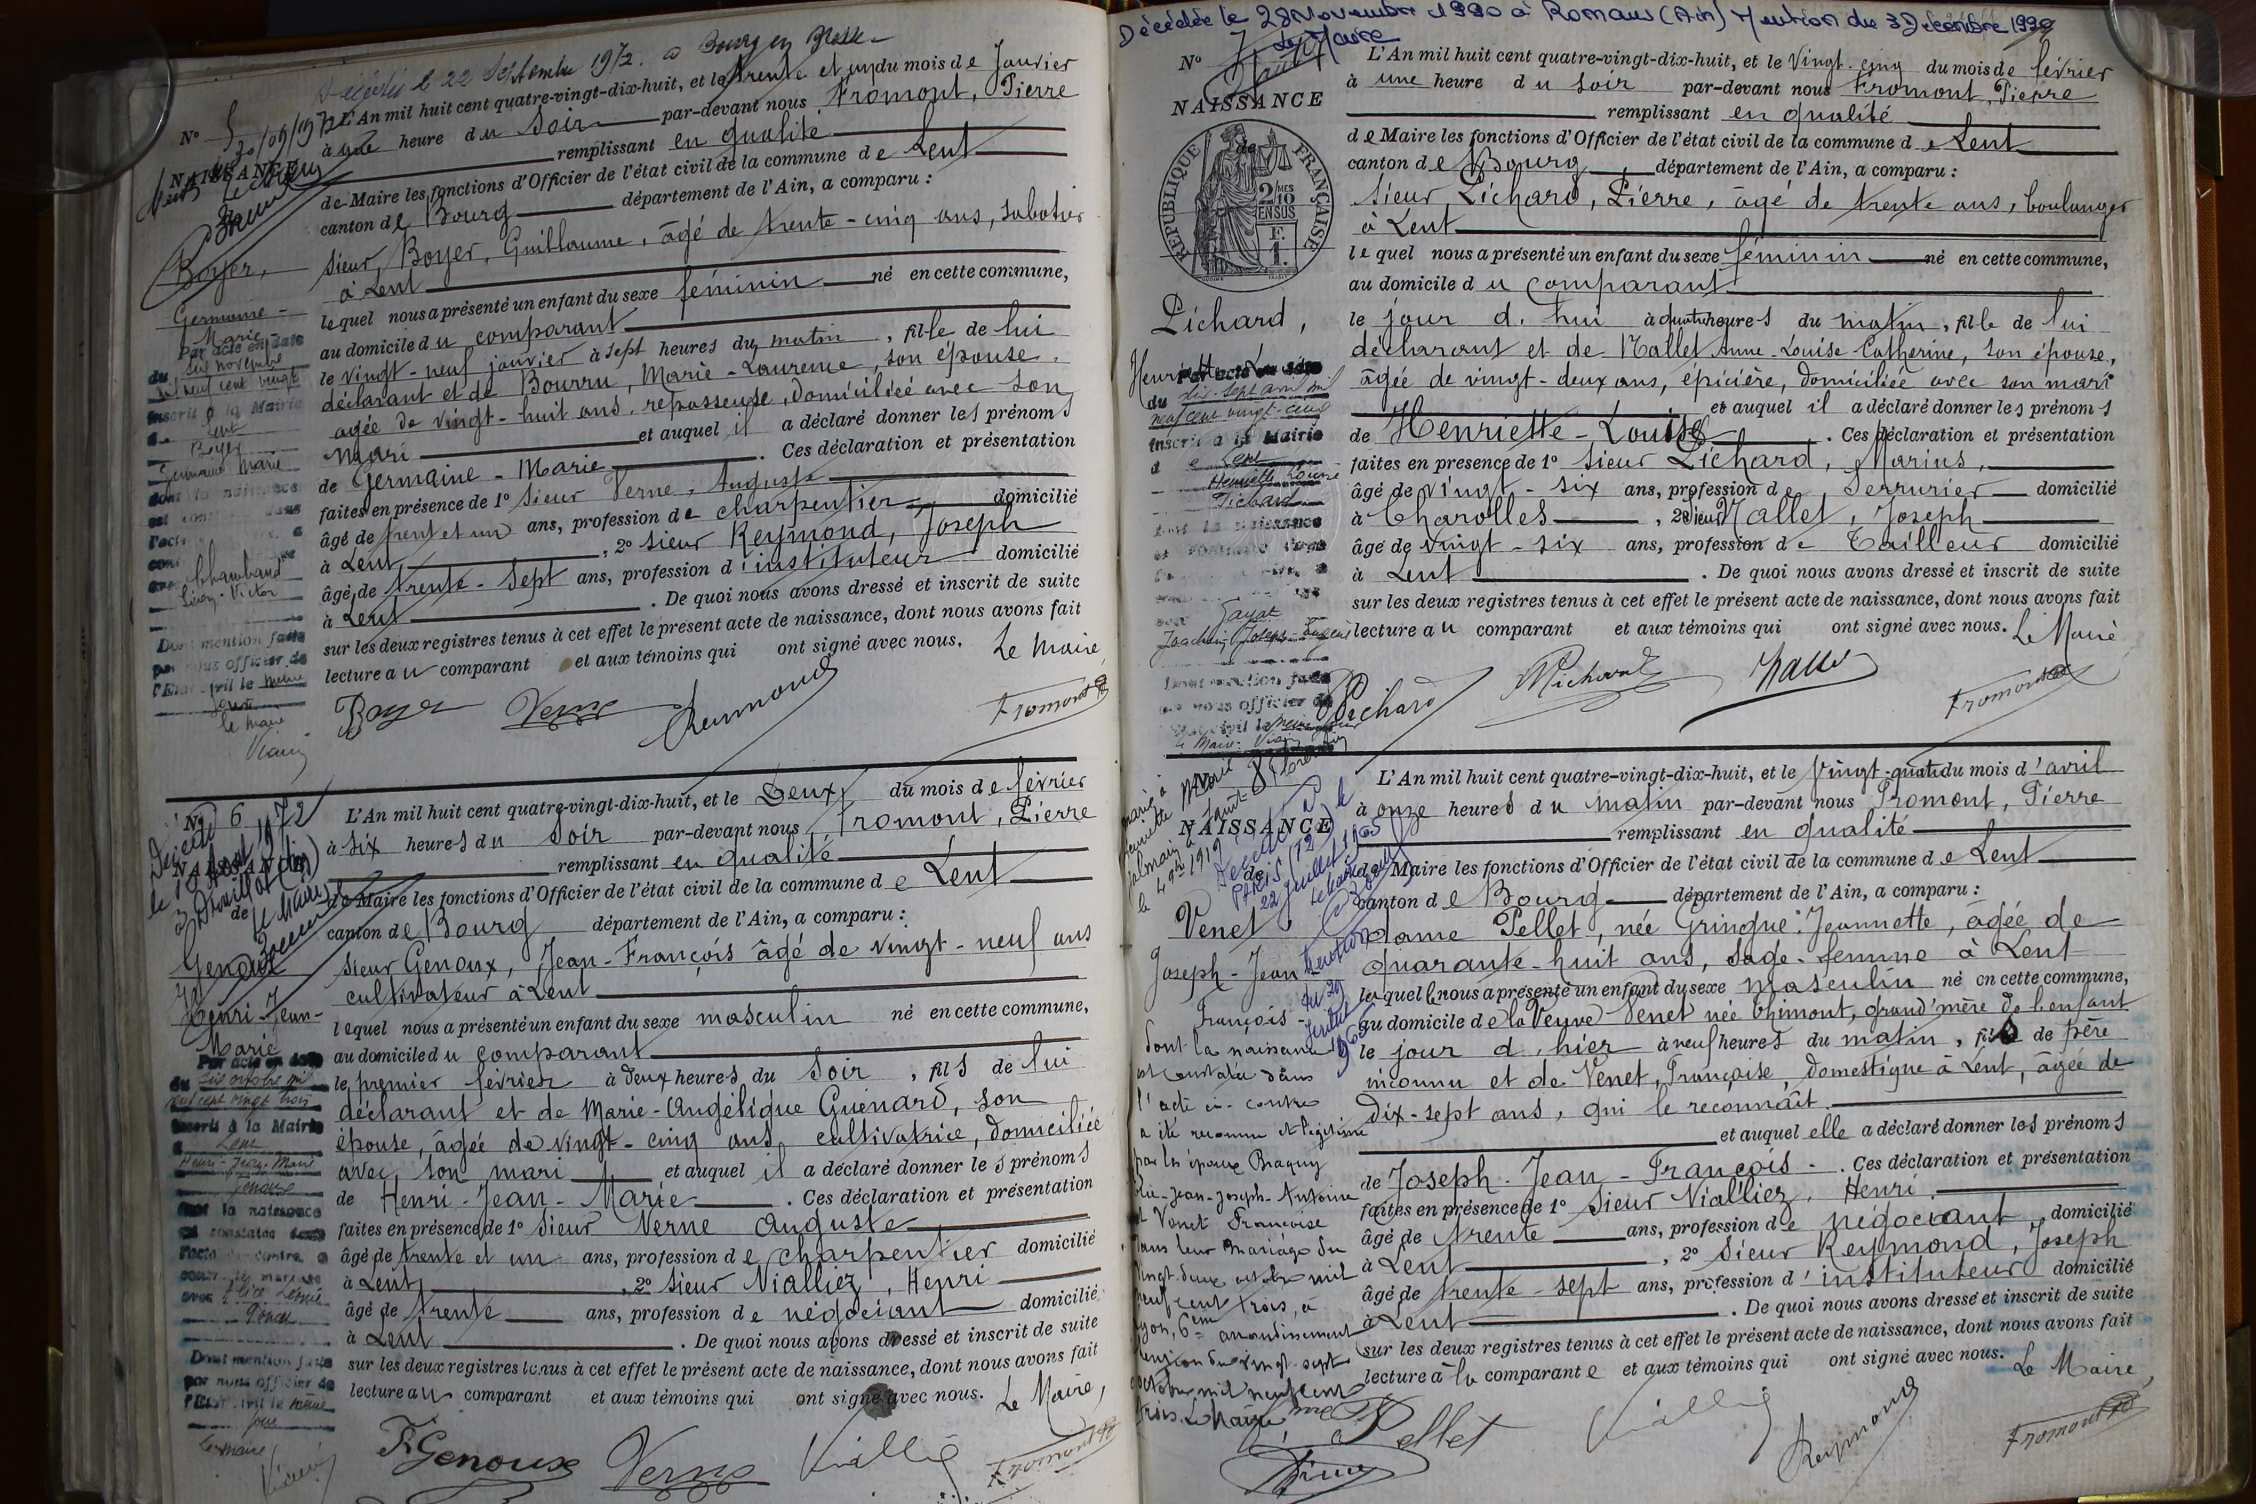 Décédée le 22 Septembre 1972 a Bourg en Bresse
N° 5
NAISSANCE
Boyer,
Germaine -
Marie
Par acte en date
du six novembre
mil neuf cent vingt
inscrit à la Mairie
de Lent
Boyer
Germaine Marie
dont la naissance
Chambaud
Victor
Dont mention faite
par nous officier de
l'Etat civil le même
jour
le Maire
L'An mil huit cent quatre-vingt-dix-huit, et le trente et un du mois de Janvier
à une heure du soir par-devant nous Fromont, Pierre
remplissant en qualité
de Maire les fonctions d'Officier de l'état civil de la commune de Lent
canton de Bourg département de l'Ain, a comparu :
Sieur, Boyer, Guillaume, âgé de trente-cinq ans, sabotier
à Lent
lequel nous a présenté un enfant du sexe féminin né en cette commune,
au domicile du comparant
le vingt-neuf janvier à sept heures du matin, fille de lui
déclarant et de Bourru, Marie-Laurence, son épouse,
agée de vingt-huit ans, repasseuse, domiciliée avec son
mari et auquel il a déclaré donner les prénoms
de Germaine - Marie . Ces déclaration et présentation
faites en présence de 1° Sieur Verne, Auguste
âgé de trent et un ans, profession de charpentier domicilié
à Lent, 2° Sieur Reymond, Joseph
âgé de trente-sept ans, profession d'instituteur domicilié
à Lent . De quoi nous avons dressé et inscrit de suite
sur les deux registres tenus à cet effet le présent acte de naissance, dont nous avons fait
lecture au comparant et aux témoins qui ont signé avec nous. Le Maire,
Boyer Verne Reymond Fromont
N° 6
NAISSANCE
de
Genoux
Henri-Jean-
Marie
Par acte en date
du six octobre mil
neuf cent vingt trois
inscrit à la Mairie
Lent
Henri-Jean-Marie
Genoux
dont la naissance
est constatée dans
l'acte ci-contre, a
Dont mention faite
par nous officier de
l'Etat civil le même
jour
Le Maire
L'An mil huit cent quatre-vingt-dix-huit, et le Deux du mois de février
à six heures du Soir par-devant nous, Fromont, Pierre
remplissant en qualité
de Maire les fonctions d'Officier de l'état civil de la commune de Lent
canton de Bourg département de l'Ain, a comparu :
Sieur Genoux, Jean-François âgé de vingt-neuf ans
cultivateur à Lent
lequel nous a présenté un enfant du sexe masculin né en cette commune,
au domicile du comparant
le premier février à deux heures du Soir, fils de lui
déclarant et de Marie-Angélique Guénard, son
épouse, âgée de vingt-cinq ans, cultivatrice, domiciliée
avec son mari et auquel il a déclaré donner les prénoms
de Henri-Jean-Marie . Ces déclaration et présentation
faites en présence de 1° Sieur Verne Auguste
âgé de trente et un ans, profession de charpentier domicilié
à Lent, 2° Sieur Vialliez, Henri
âgé de trente ans, profession de négociant domicilié
à Lent . De quoi nous avons dressé et inscrit de suite
sur les deux registres tenus à cet effet le présent acte de naissance, dont nous avons fait
lecture au comparant et aux témoins qui ont signé avec nous. Le Maire,
F. Genoux Verne Fromont
Décédée le 28 Novembre 1990 à Romans (Ain) Mention du 3 Décembre 1990
Le Maire
N° 7
NAISSANCE
de
REPUBLIQUE FRANÇAISE
2/10 MES
EN SUS
1 F.
Pichard,
du dix-sept avril mil
inscrit à la Mairie
de Lent
Henriette Louise
Pichard
Gayat
Joachim-Joseph-Eugène
L'An mil huit cent quatre-vingt-dix-huit, et le Vingt-cinq du mois de février
à une heure du soir par-devant nous Fromont, Pierre
remplissant en qualité
de Maire les fonctions d'Officier de l'état civil de la commune de Lent
canton de Bourg, département de l'Ain, a comparu :
Sieur, Pichard, Pierre, âgé de trente ans, boulanger
à Lent
lequel nous a présenté un enfant du sexe féminin né en cette commune,
au domicile du comparant
le jour d'hui à quatre heures du matin, fille de lui
déclarant et de Mallet Anne-Louise Catherine, son épouse,
âgée de vingt-deux ans, épicière, domiciliée avec son mari
et auquel il a déclaré donner les prénoms
de Henriette-Louise . Ces déclaration et présentation
faites en presence de 1° Sieur Pichard, Marius,
âgé de vingt-six ans, profession de Serrurier domicilié
à Charolles, 2° Sieur Mallet, Joseph
âgé de vingt-six ans, profession de Tailleur domicilié
à Lent . De quoi nous avons dressé et inscrit de suite
sur les deux registres tenus à cet effet le présent acte de naissance, dont nous avons fait
lecture au comparant et aux témoins qui ont signé avec nous. Le Maire
Pichard Pichard Mallet Fromont
N° 8
NAISSANCE
de
Décédé à
PARIS (12) le
22 Juillet 1965
Venet
Joseph-Jean
François-
dont la naissance
est constatée dans
l'acte ci-contre
a été reconnu et légitimé
par les époux Braguy
Jean-Joseph-Antoine
et Venet Françoise
dans leur mariage du
vingt-deux octobre mil
neuf cent trois, à
Lyon, 6ème arrondissement
vingt-sept
octobre mil neuf cent
trois. Le Maire
L'An mil huit cent quatre-vingt-dix-huit, et le Vingt-quatre du mois d'avril
à onze heures du matin par-devant nous Fromont, Pierre
remplissant en qualité
de Maire les fonctions d'Officier de l'état civil de la commune de Lent
canton de Bourg département de l'Ain, a comparu :
dame Pellet, née Gringue Jeannette, âgée de
quarante-huit ans, sage-femme à Lent
laquelle nous a présenté un enfant du sexe masculin né en cette commune,
au domicile de la Veuve Venet née Thimont, grand'mère de l'enfant
le jour d'hier à neuf heures du matin, fils de père
inconnu et de Venet, Françoise, domestique à Lent, âgée de
dix-sept ans, qui le reconnaît
et auquel elle a déclaré donner les prénoms
de Joseph-Jean-François . Ces déclaration et présentation
faites en présence de 1° Sieur Vialliez, Henri
âgé de trente ans, profession de négociant domicilié
à Lent, 2° Sieur Reymond, Joseph
âgé de trente-sept ans, profession d'instituteur domicilié
à Lent . De quoi nous avons dressé et inscrit de suite
sur les deux registres tenus à cet effet le présent acte de naissance, dont nous avons fait
lecture à la comparante et aux témoins qui ont signé avec nous. Le Maire,
Pellet Reymond Fromont